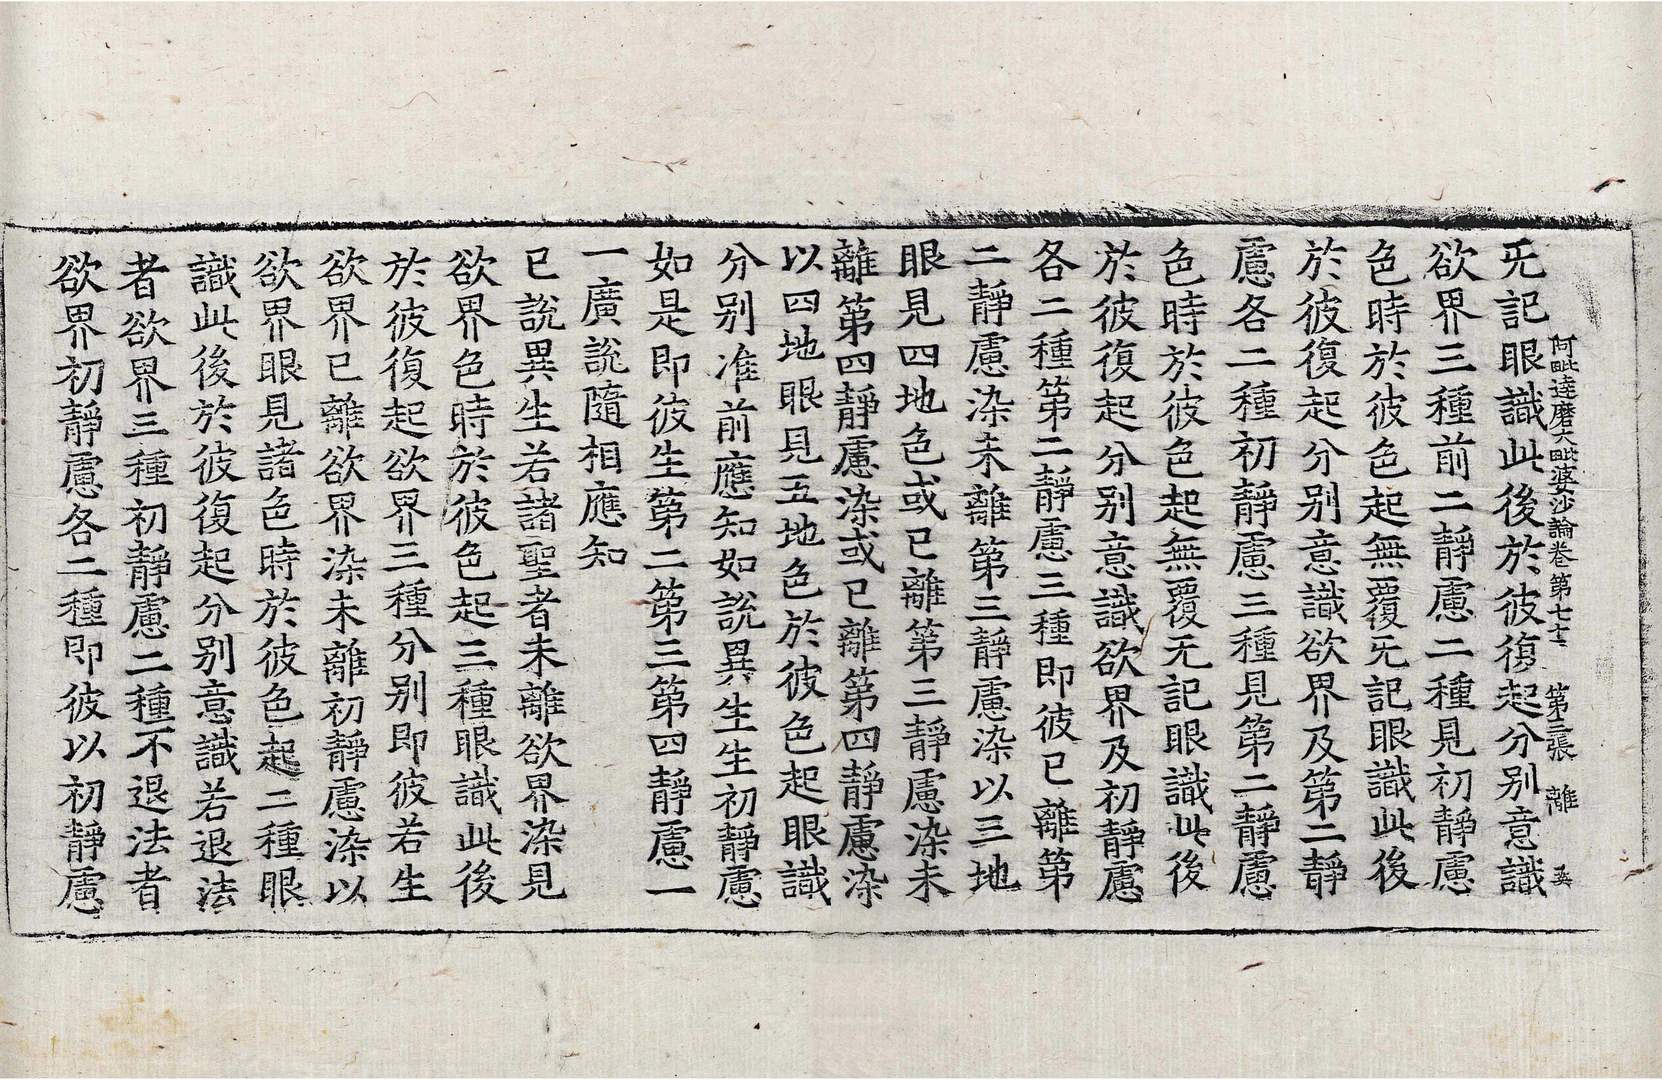 阿毗達磨大毗婆沙論卷第七十三 第三張 離
无記眼識此後於彼復起分別意識
欲界三種前二靜慮二種見初靜慮
色時於彼色起無覆无記眼識此後
於彼復起分別意識欲界及第二靜
慮各二種初靜慮三種見第二靜慮
色時於彼色起無覆无記眼識此後
於彼復起分別意識欲界及初靜慮
各二種第二靜慮三種即彼已離第
二靜慮染未離第三靜慮染以三地
眼見四地色或已離第三靜慮染未
離第四靜慮染或已離第四靜慮染
以四地眼見五地色於彼色起眼識
分別准前應知如說異生生初靜慮
如是即彼生第二第三第四靜慮一
一廣說隨相應知
已說異生若諸聖者未離欲界染見
欲界色時於彼色起三種眼識此後
於彼復起欲界三種分別即彼若生
欲界已離欲界染未離初靜慮染以
欲界眼見諸色時於彼色起二種眼
識此後於彼復起分別意識若退法
者欲界三種初靜慮二種不退法者
欲界初靜慮各二種即彼以初靜慮